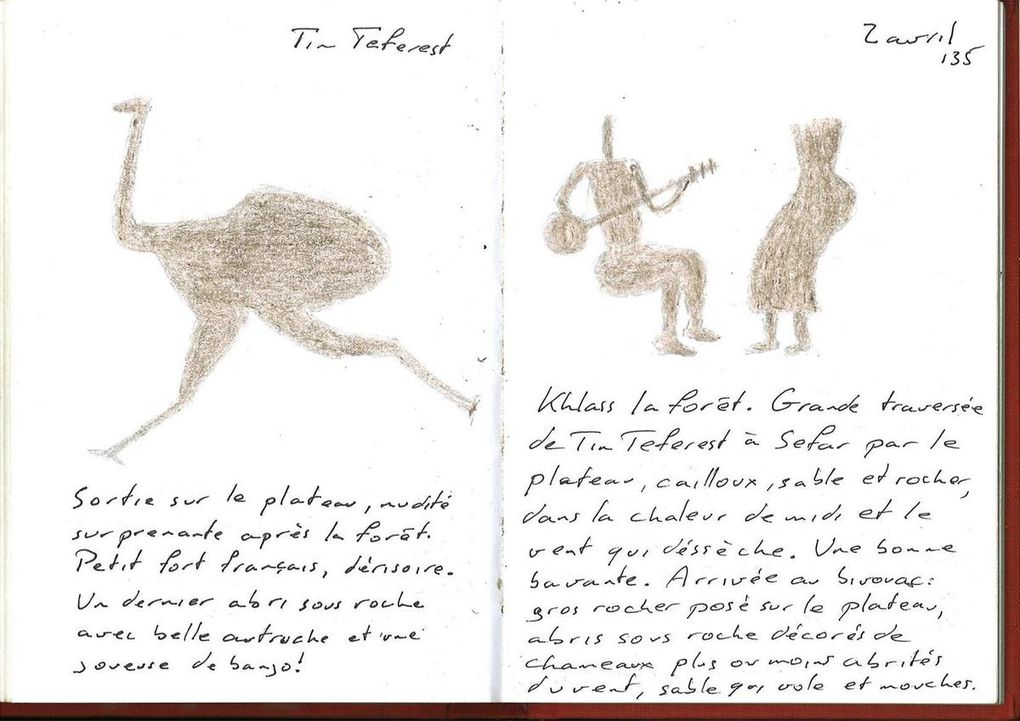 Tin Teferest
Sortie sur le plateau, nudité
surprenante après la forêt.
Petit fort français, dérisoire.
Un dernier abri sous roche
avec belle autruche et une
joueuse de banjo!
2 avril
135
Khlass la forêt. Grande traversée
de Tin Teferest à Sefar par le
plateau, cailloux, sable et rocher,
dans la chaleur de midi et le
vent qui déssèche. Une bonne
bavante. Arrivée au bivouac:
gros rocher posé sur le plateau,
abris sous roche décorés de
chameaux plus ou moins abrités
du vent, sable qui vole et mouches.